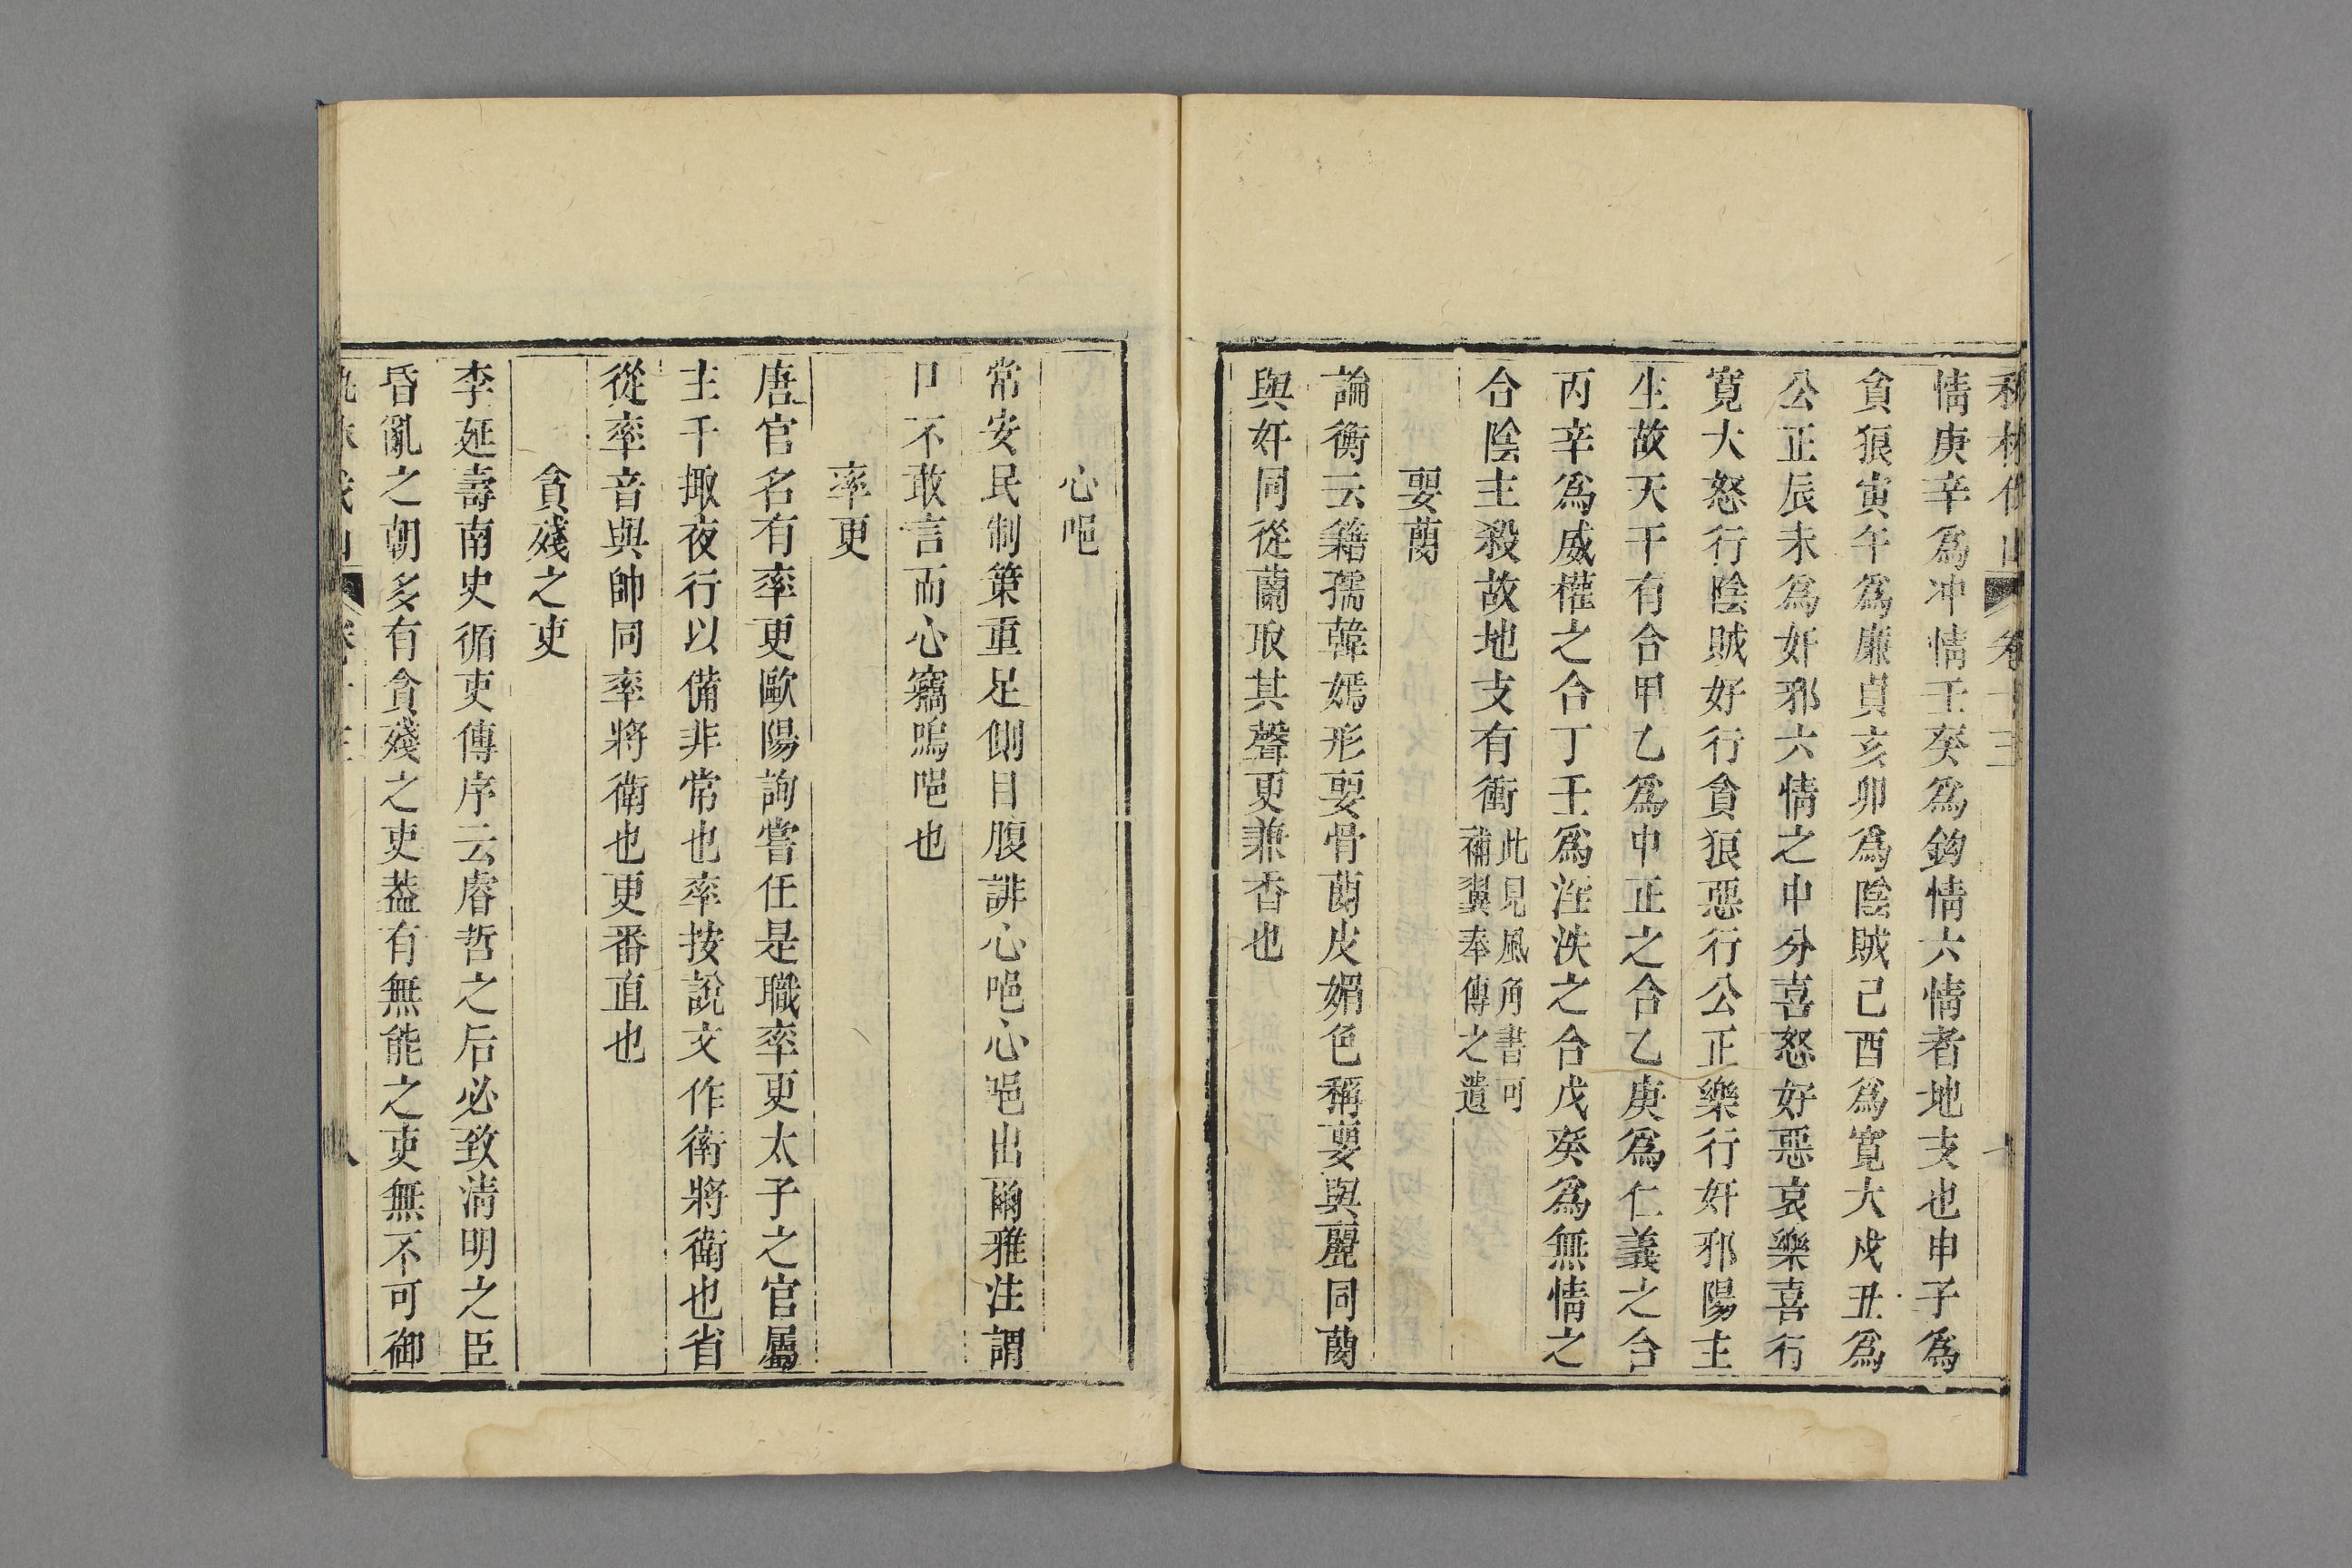 情庚辛爲冲情壬癸爲鈎情六情者地支也申子爲
貪狼寅午爲廉貞亥卯爲陰賊己酉爲寬大戌丑爲
公正辰未爲奸邪六情之中分喜怒好惡哀樂喜行
寬大怒行陰賊好行貪狼惡行公正樂行奸邪陽主
生故天干有合甲乙爲中正之合乙庚爲仁義之合
丙辛爲威權之合丁壬爲淫泆之合戊癸爲無情之
合陰主殺故地支有衝此見風角書可補翼奉傳之遺
㛐䕞
論衡云籍孺韓嫣形㛐骨䕞皮媚色稱㛐與麗同䕞
與奸同從蘭取其聲更兼香也
心唈
常安民制策重足側目腹誹心唈心唈出爾雅注謂
口不敢言而心竊嗚唈也
率更
唐官名有率更歐陽詢嘗任是職率更太子之官屬
主千掫夜行以備非常也率按說文作䘖將衛也省
從率音與帥同率將衛也更番直也
貪殘之吏
李延壽南史循吏傳序云睿哲之后必致清明之臣
昏亂之朝多有貪殘之吏葢有無能之吏無不可御